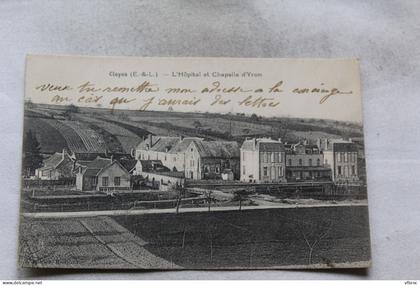 Cloyes (E.-&-L.) — L'Hôpital et Chapelle d'Yron
veux tu remettre mon adresse a la concierge
au cas que j'aurais des lettres,